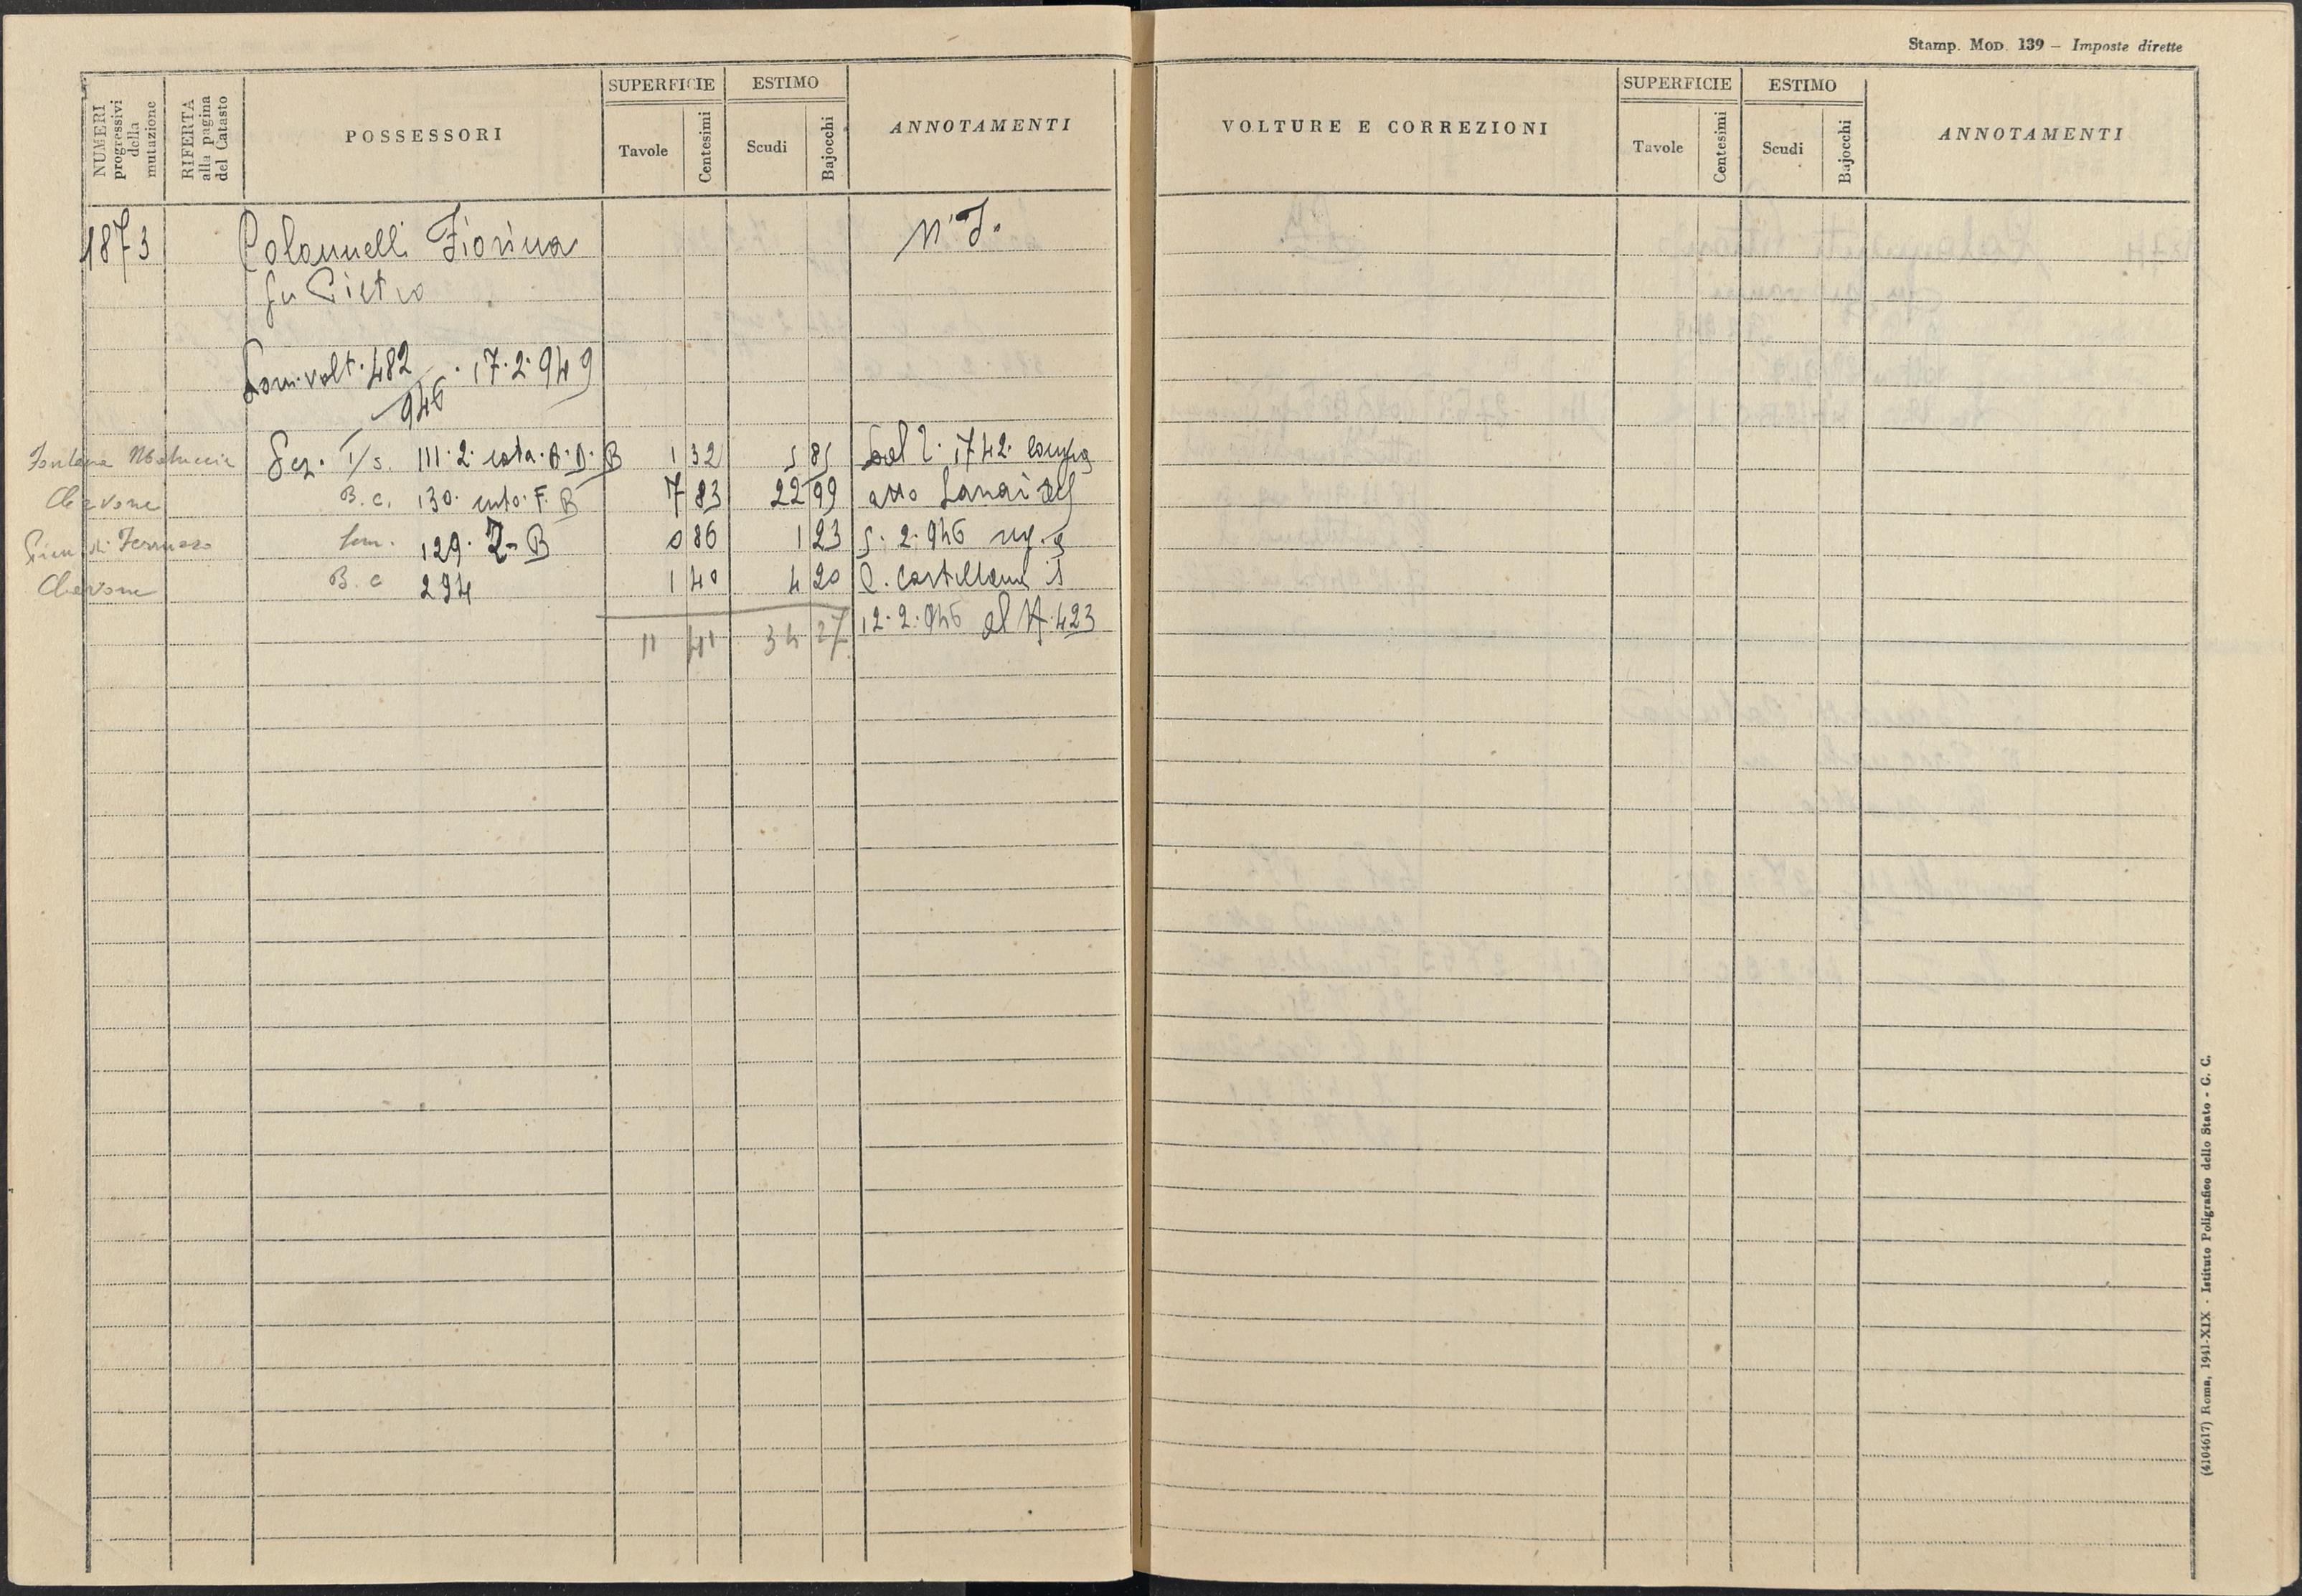 Stamp. Mod. 139 — Imposte dirette
NUMERI progressivi della mutazione
RIFERTA alla pagina del Catasto
POSSESSORI
SUPERFICIE
Tavole
Centesimi
ESTIMO
Scudi
Bajocchi
ANNOTAMENTI
VOLTURE E CORREZIONI
SUPERFICIE
Tavole
Centesimi
ESTIMO
Scudi
Bajocchi
ANNOTAMENTI
1873 Colannelli Fiorina N. I.
fu Pietro
Dom. volt. 482/946 . 17.2.949
Fontana Sez. I/s. 111.2 B.D.B 1 32 5 85 Dal 1742
Cervone B.c. 130 F.B 7 83 22 99 atto
Sem. 129. 2-B 0 86 1 23 5.2.946 reg. a
Cervone B.c 294 1 40 4 20 C. Castellana il
12.2.946 al N. 423
11 41 34 27
(4104617) Roma, 1941-XIX - Istituto Poligrafico dello Stato - G. C.